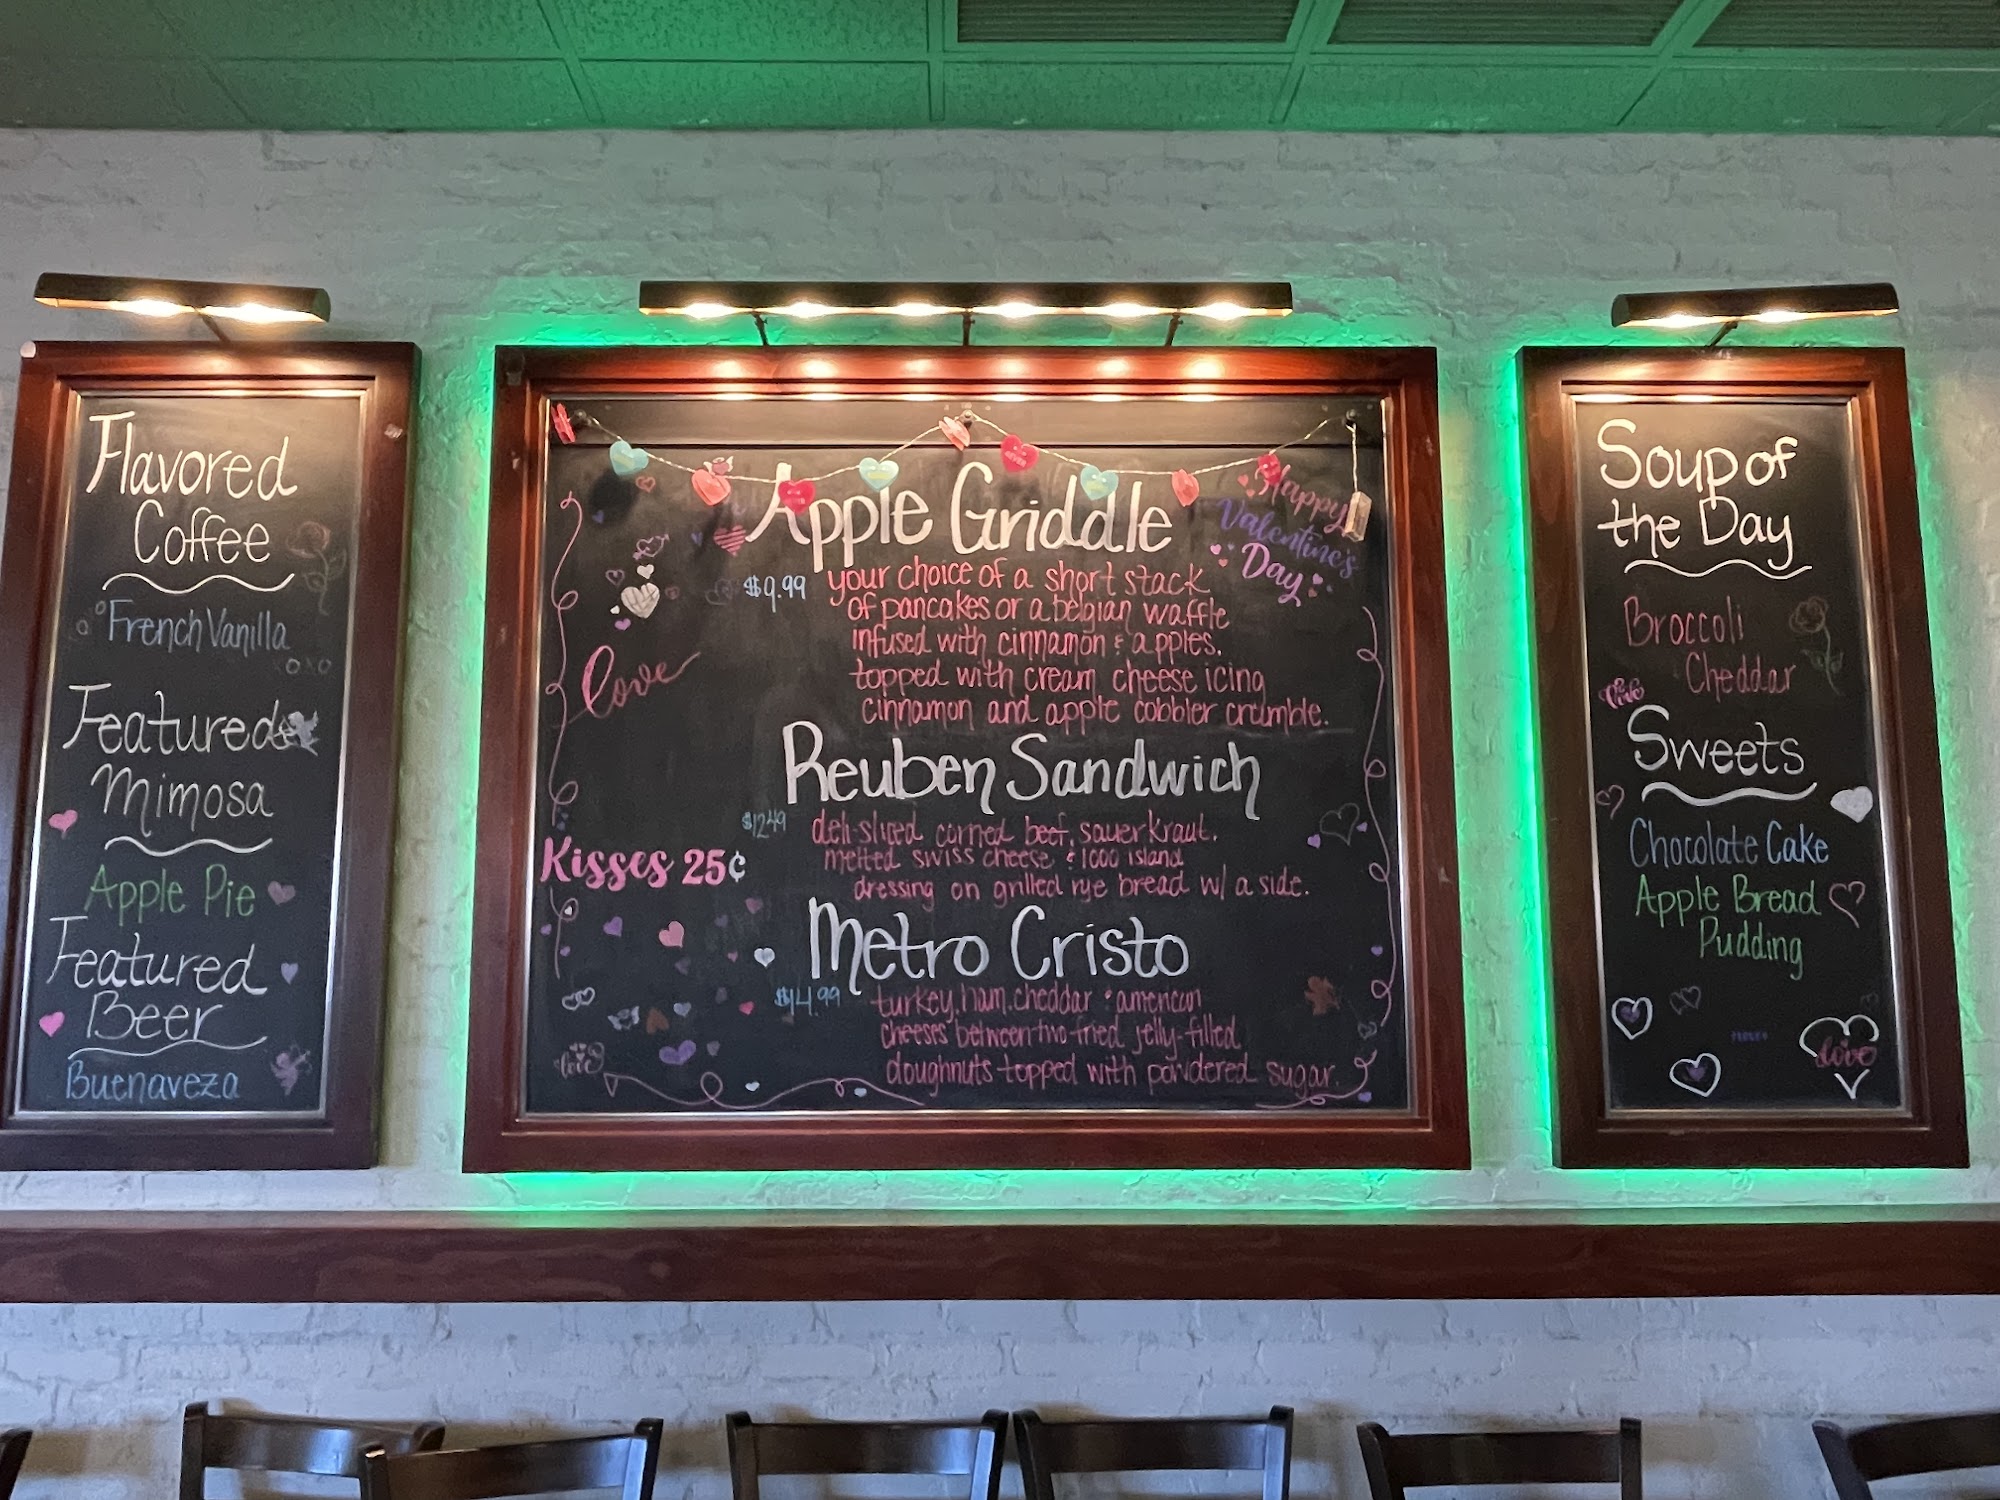 Flavored
Coffee
French Vanilla
XOXO
Featured
Mimosa
Apple Pie
Featured
Beer
Buenaveza
Happy
Valentine's
Day
Apple Griddle
$9.99
your choice of a short stack
of pancakes or a belgian waffle
infused with cinnamon & apples.
topped with cream cheese icing
cinnamon and apple cobbler crumble.
love
Reuben Sandwich
$12.49
deli-sliced corned beef, sauerkraut,
melted swiss cheese & 1000 island
dressing on grilled rye bread w/ a side.
Kisses 25¢
Metro Cristo
$14.99
turkey, ham, cheddar & american
cheeses between two fried jelly-filled
doughnuts topped with powdered sugar.
love
Soup of
the Day
Broccoli
Cheddar
love
Sweets
Chocolate Cake
Apple Bread
Pudding
love